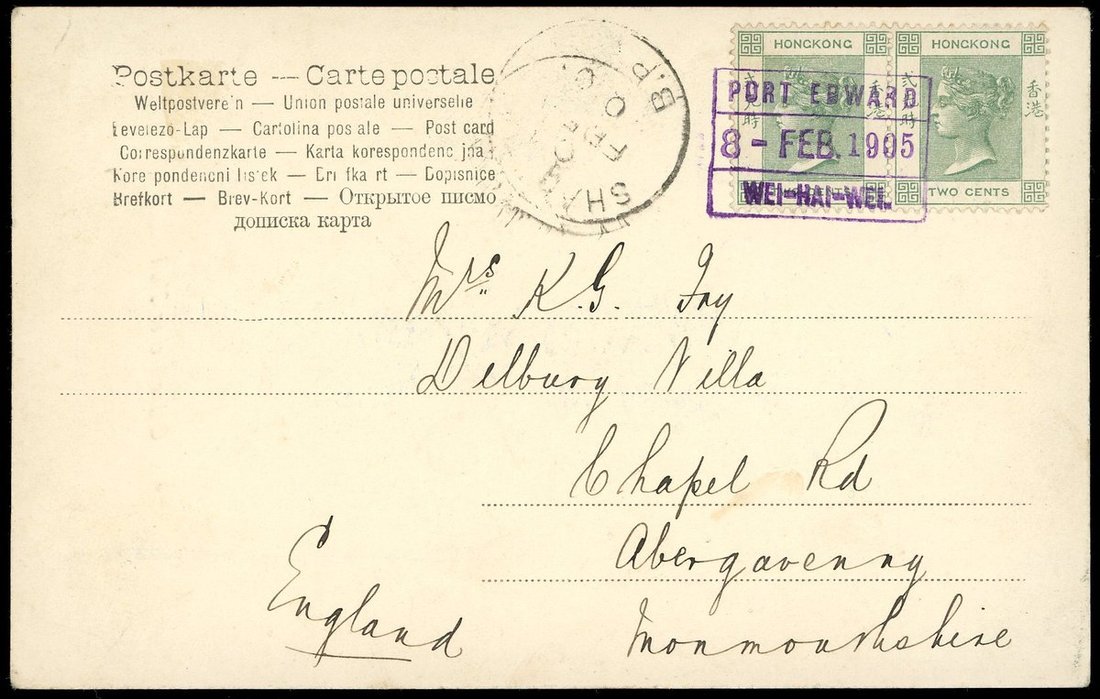 Postkarte — Carte postale
Weltpostverein — Union postale universelle
Levelezo-Lap — Cartolina pos ale — Post card
Correspondenzkarte — Karta korespondenc jna
Kore pondencni listek — Brevkart — Dopisnice
Brefkort — Brev-Kort — Открытое письмо
дописка карта
HONGKONG HONGKONG
香港 貳時 香港
TWO CENTS
PORT EDWARD
8 - FEB. 1905
WEI-HAI-WEI.
B.P.O.
SHA
Mrs K.G. Fry
Delbury Villa
Chapel Rd
Abergavenny
England
Monmouthshire